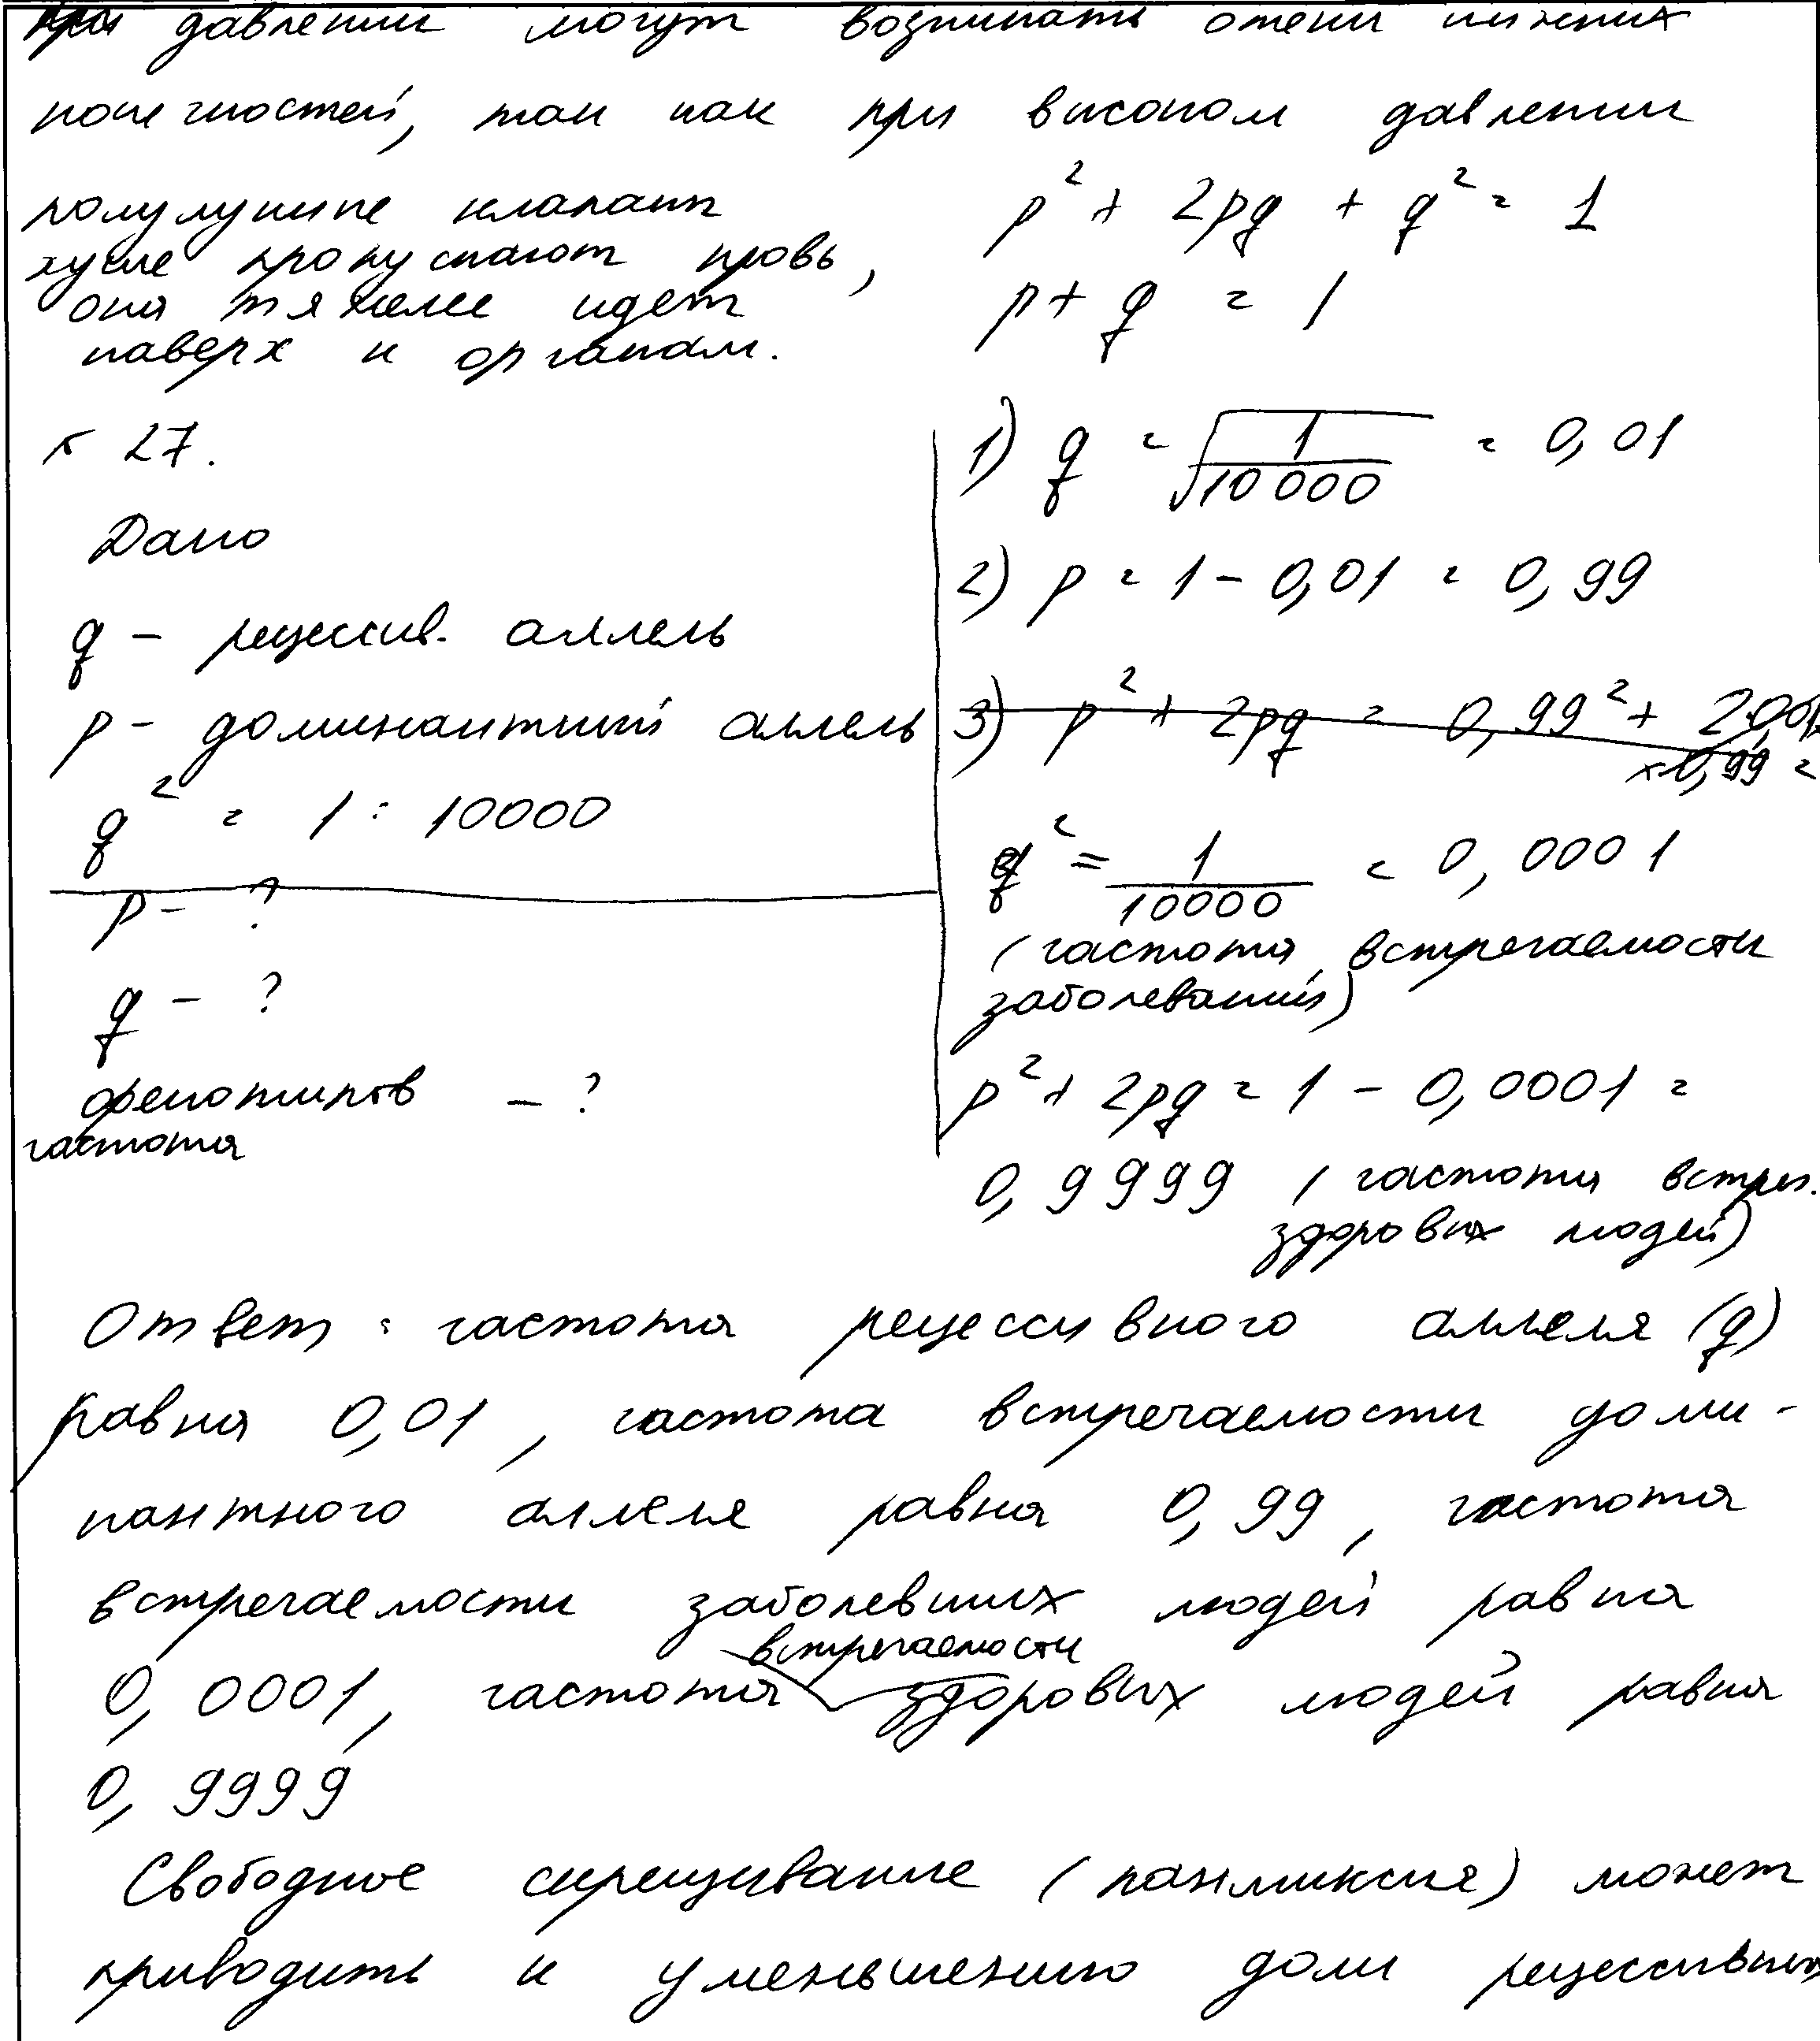 при давлении могут возникать отеки нижних
конечностей, так как при високом давлении
полулуние клапани
хуже пропускают кровь,
она тяжелее идет
наверх к органам.
p² + 2pq + q² = 1
p + q = 1
27.
Дано
q - рецессив. аллель
p - доминантний аллель
q² = 1 : 10000
p - ?
q - ?
фенотипов - ?
частота
1) q = √1/10000 = 0,01
2) p = 1 - 0,01 = 0,99
3) p² + 2pq = 0,99² + 2·0,01
×0,99 =
q² = 1/10000 = 0,0001
(частота встречаемости
заболеваний)
p² + 2pq = 1 - 0,0001 =
0,9999 (частота встреч.
здорових людей)
Ответ: частота рецессивного аллеля (q)
равна 0,01, частота встречаемости доми-
нантного аллеля равна 0,99, частота
встречаемости заболевших людей равна
0,0001, частота встречаемости здорових людей равна
0,9999
Свободное скрещивание (панмиксия) может
приводить к уменьшению доли рецессивних